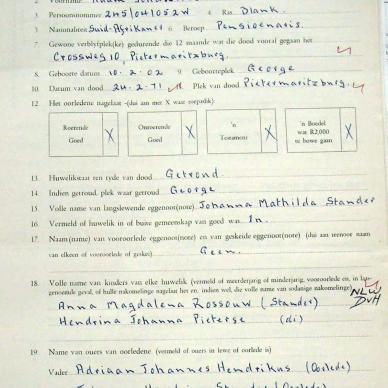 2. Voornaam
3. Persoonsnommer 245/041052W 4. Ras Blank.
5. Nasionaliteit Suid-Afrikaner 6. Beroep Pensioenaris.
7. Gewone verblyfplek(ke) gedurende die 12 maande wat die dood vooraf gegaan het
Crossweg 10, Pietermaritzburg.
8. Geboorte datum 10.2.02 9. Geboorteplek George
10. Datum van dood 24.2.71 11. Plek van dood Pietermaritzburg.
12. Het oorledene nagelaat -(dui aan met X waar toepaslik):
Roerende Goed X
Onroerende Goed X
'n Testament X
'n Boedel wat R2,000 te bowe gaan X
13. Huwelikstaat ten tyde van dood Getroud.
14. Indien getroud, plek waar getroud George
15. Volle name van langslewende eggenoot(note) Johanna Mathilda Stander
16. Vermeld of huwelik in of buite gemeenskap van goed was In.
17. Naam(name) van vooroorlede eggenoot(note) en van geskeide eggenoot(note) (dui aan teenoor naam
van elkeen of vooroorlede of geskei) Geen.
18. Volle name van kinders van elke huwelik (vermeld of meerderjarig of minderjarig, vooroorlede en, in
geval, of hulle nakomelinge nagelaat het en, indien wel, die volle name van sodanige nakomelinge)
NLW
DvH
Anna Magdalena Rossouw (Stander)
Hendrina Johanna Pieterse (di)
19. Name van ouers van oorledene (vermeld of ouers in lewe of oorlede is)
Vader Adriaan Johannes Hendrikus (Oorlede)